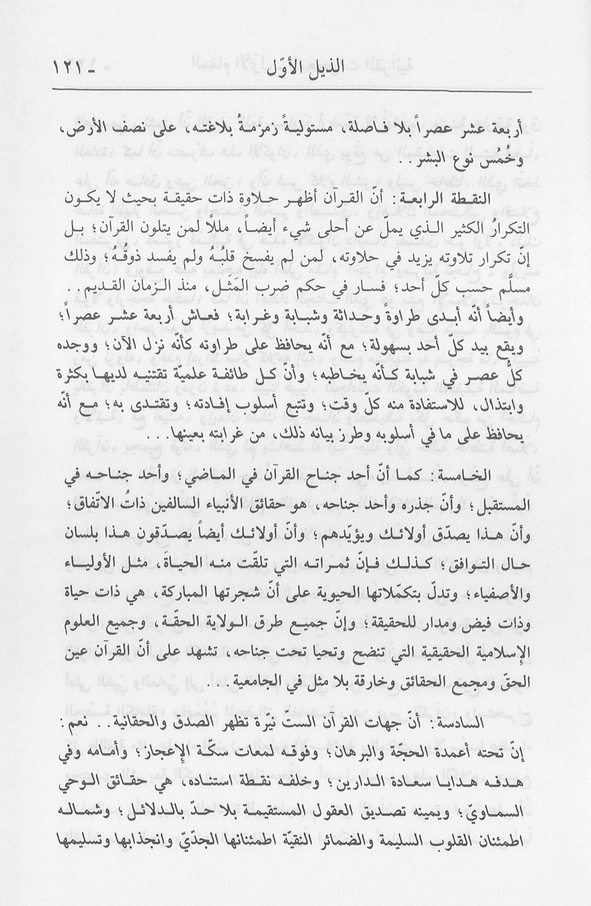 الذيل الأوّل
- ١٢١
أربعة عشر عصراً بلا فاصلة، مستوليةً زمزمةُ بلاغته، على نصف الأرض،
وخُمُس نوع البشر..
النقطة الرابعة: أنّ القرآن أظهر حلاوة ذات حقيقة بحيث لا يكون
التكرارُ الكثير الذي يملّ عن أحلى شيء أيضاً، مملاً لمن يتلون القرآن؛ بل
إنّ تكرار تلاوته يزيد في حلاوته، لمن لم يفسخ قلبُهُ ولم يفسد ذوقُهُ؛ وذلك
مسلَّم حسب كلّ أحد؛ فسار في حكم ضرب المَثَل، منذ الزمان القديم..
وأيضاً أنّه أبدى طراوةً وحداثة وشبابة وغرابة؛ فعاش أربعة عشر عصراً؛
ويقع بيد كلّ أحد بسهولة؛ مع أنّه يحافظ على طراوته كأنّه نزل الآن؛ ووجده
كلُّ عصر في شبابة كأنّه يخاطبه؛ وأنّ كل طائفة علميّة تقتنيه لديها بكثرة
وابتذال، للاستفادة منه كلّ وقت؛ وتتبع أسلوب إفادته؛ وتقتدى به؛ مع أنّه
يحافظ على ما في أسلوبه وطرز بيانه ذلك، من غرابته بعينها...
الخامسة: كما أنّ أحد جناح القرآن في الماضي؛ وأحد جناحه في
المستقبل؛ وأنّ جذره وأحد جناحه، هو حقائق الأنبياء السالفين ذاتُ الاتّفاق؛
وأنّ هذا يصدّق أولائك ويؤيّدهم؛ وأنّ أولائك أيضاً يصدّقون هذا بلسان
حال التوافق؛ كذلك فإنّ ثمراته التي تلقّت منه الحياةَ، مثل الأولياء
والأصفياء؛ وتدلّ بتكمّلاتها الحيوية على أنّ شجرتها المباركة، هي ذات حياة
وذات فيض ومدار للحقيقة؛ وإنّ جميع طرق الولاية الحقّة، وجميع العلوم
الإسلامية الحقيقية التي تنضح وتحيا تحت جناحه، تشهد على أنّ القرآن عين
الحقّ ومجمع الحقائق وخارقة بلا مثل في الجامعية...
السادسة: أنّ جهات القرآن الستّ نيّرة تظهر الصدق والحقانية.. نعم:
إنّ تحته أعمدة الحجّة والبرهان؛ وفوقه لمعات سكّة الإعجاز؛ وأمامه وفي
هدفه هدايا سعادة الدارين؛ وخلفه نقطة استناده، هي حقائق الوحي
السماويّ؛ ويمينه تصديق العقول المستقيمة بلا حدّ بالدلائل؛ وشماله
اطمئنان القلوب السليمة والضمائر النقيّة اطمئنانها الجدّيّ وانجذابها وتسليمها